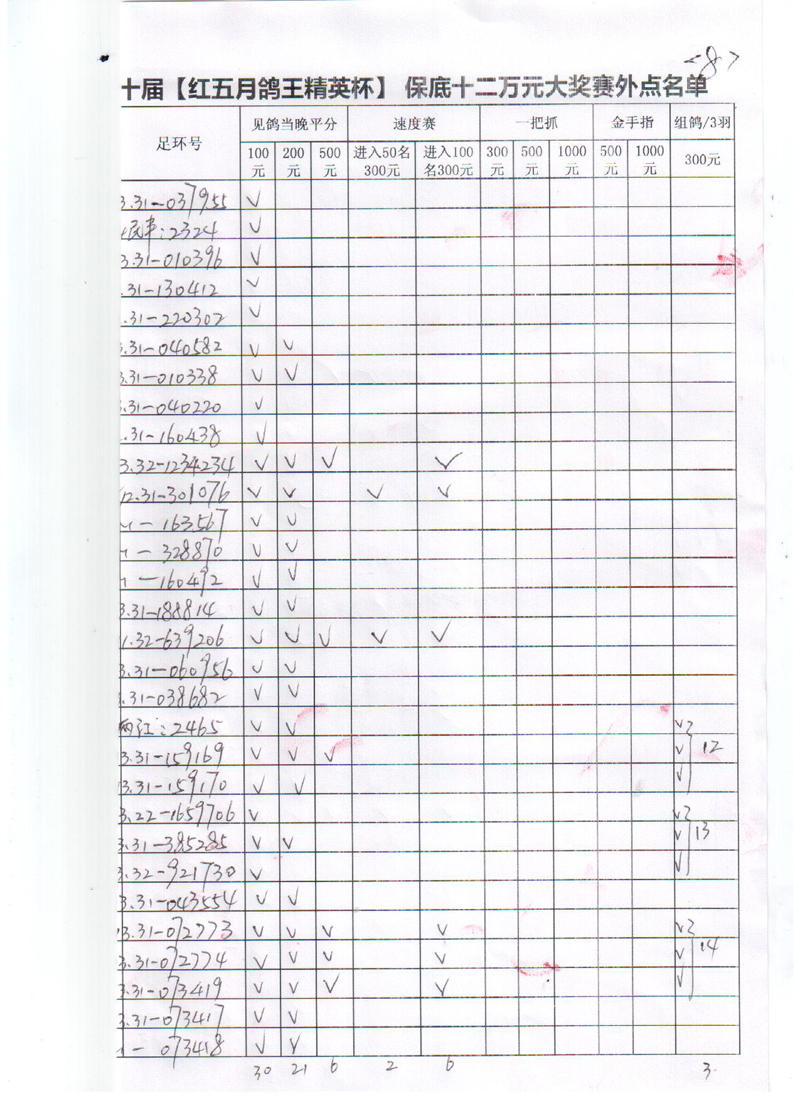 <8>
十届【红五月鸽王精英杯】 保底十二万元大奖赛外点名单
足环号 见鸽当晚平分 速度赛 一把抓 金手指 组鸽/3羽
100元 200元 500元 进入50名300元 进入100名300元 300元 500元 1000元 500元 1000元 300元
3.31-037955 ✓
:2324 ✓
3.31-010396 ✓
.31-130412 ✓
.31-220302 ✓
3.31-040582 ✓ ✓
3.31-010338 ✓ ✓
3.31-040220 ✓
.31-160438 ✓
3.32-1234234 ✓ ✓ ✓ ✓
12.31-301076 ✓ ✓ ✓ ✓
〃 - 163567 ✓ ✓
〃 - 328870 ✓ ✓
〃 - 160492 ✓ ✓
3.31-188814 ✓ ✓
1.32-639206 ✓ ✓ ✓ ✓ ✓
3.31-060956 ✓ ✓
3.31-038682 ✓ ✓
两江:2465 ✓ ✓ ✓
3.31-159169 ✓ ✓ ✓ ✓ 12
13.31-159170 ✓ ✓ ✓
3.22-1659706 ✓ ✓
3.31-385285 ✓ ✓ ✓ 13
3.32-921730 ✓ ✓
3.31-043554 ✓ ✓
13.31-072773 ✓ ✓ ✓ ✓ ✓
3.31-072774 ✓ ✓ ✓ ✓ ✓ 14
3.31-073419 ✓ ✓ ✓ ✓ ✓
3.31-073417 ✓ ✓
〃 - 073418 ✓ ✓
30 21 6 2 6 3